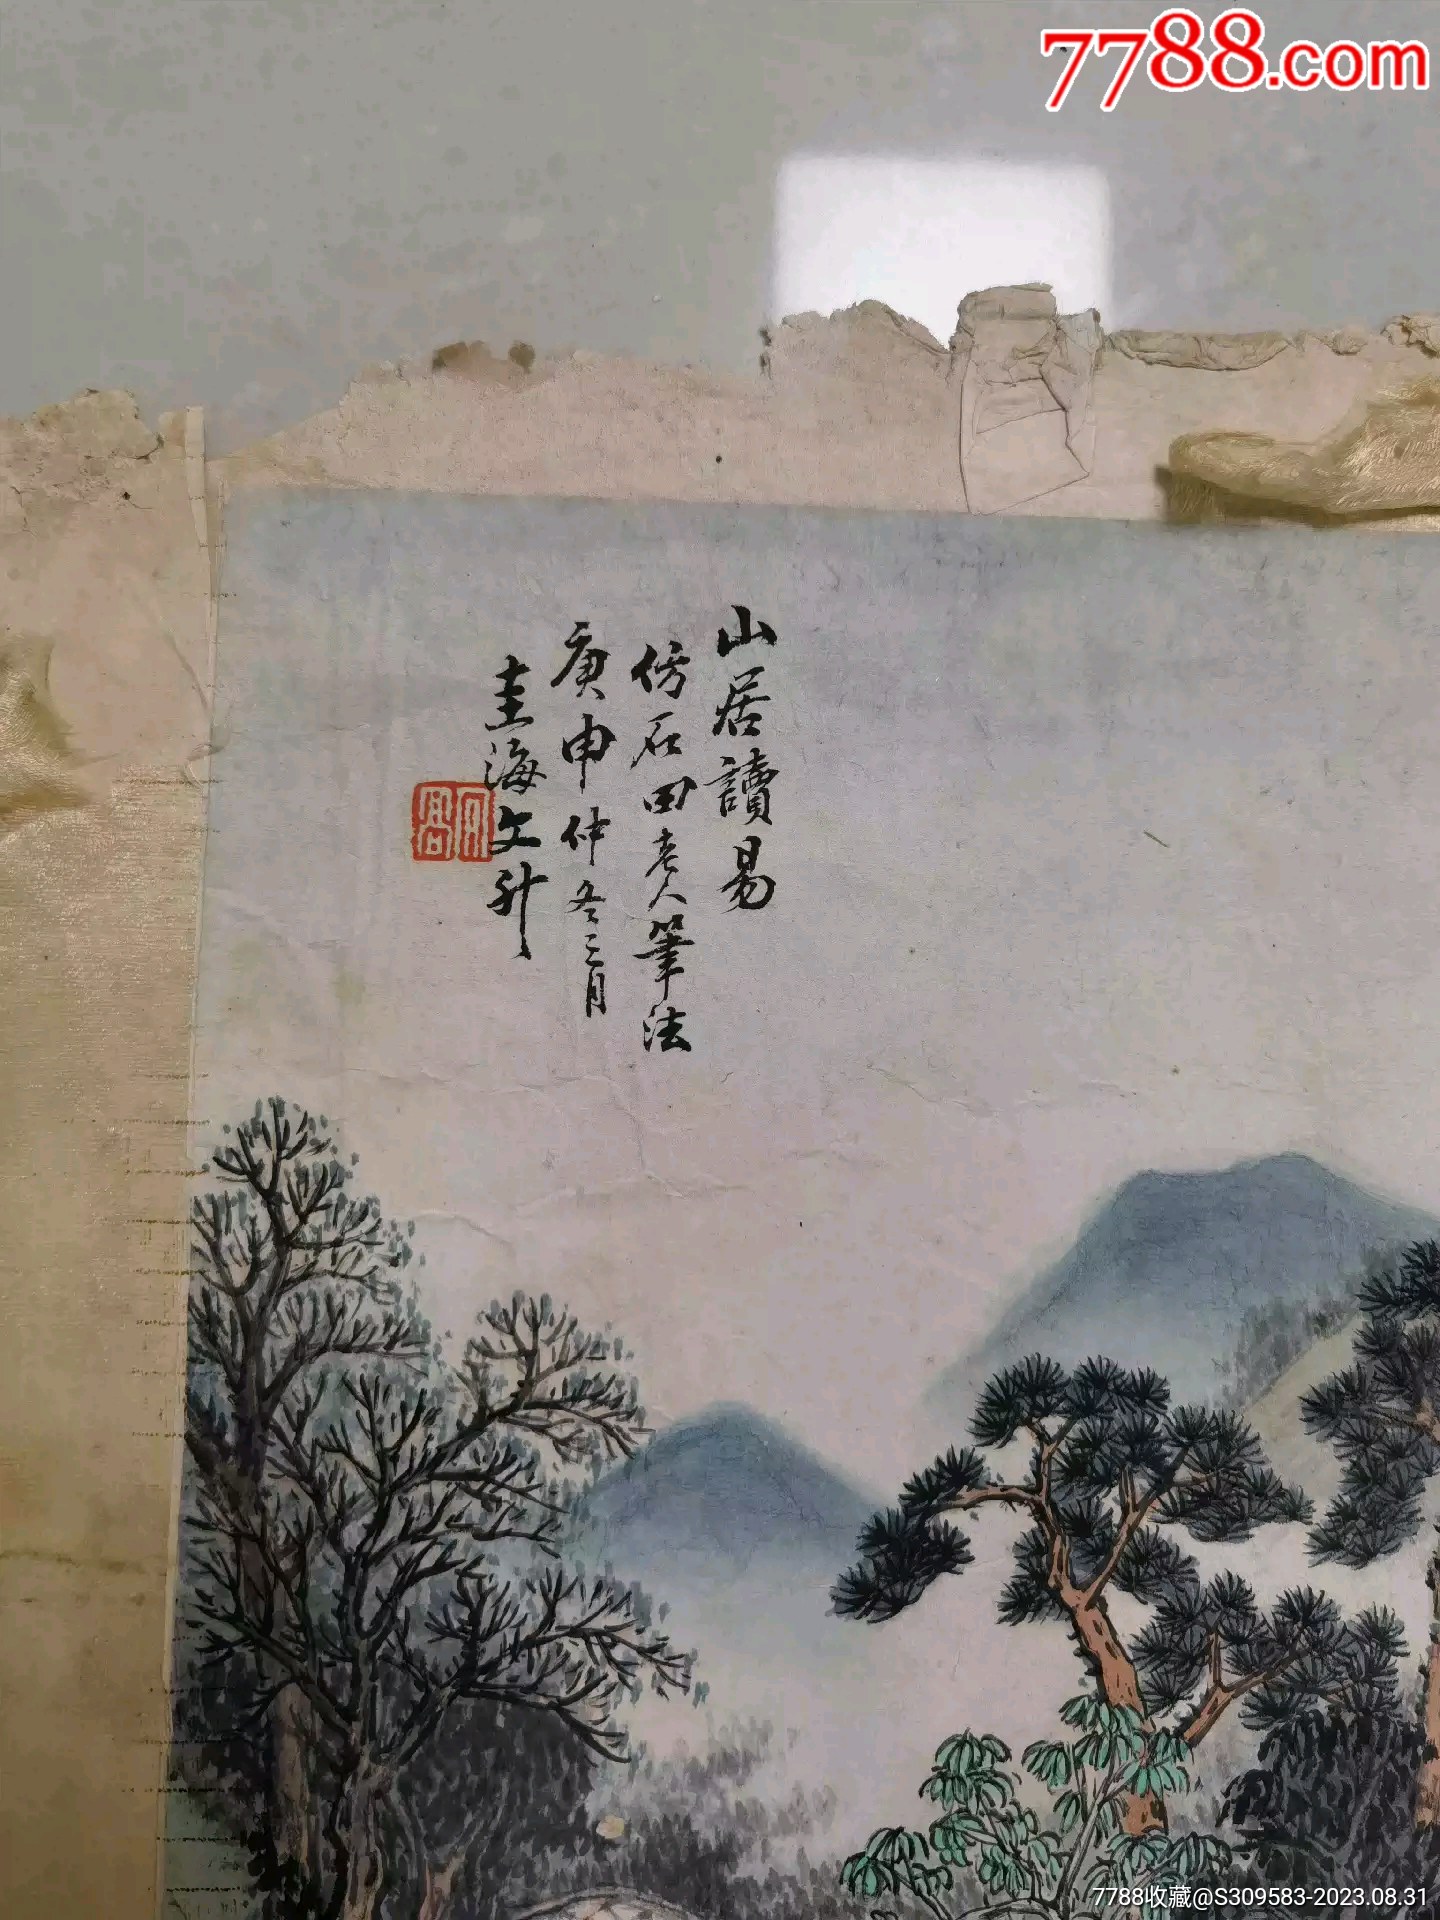 7788.com
山居讀易
仿石田老人筆法
庚申仲冬三月
圭海文升
7788收藏@S309583-2023.08.31